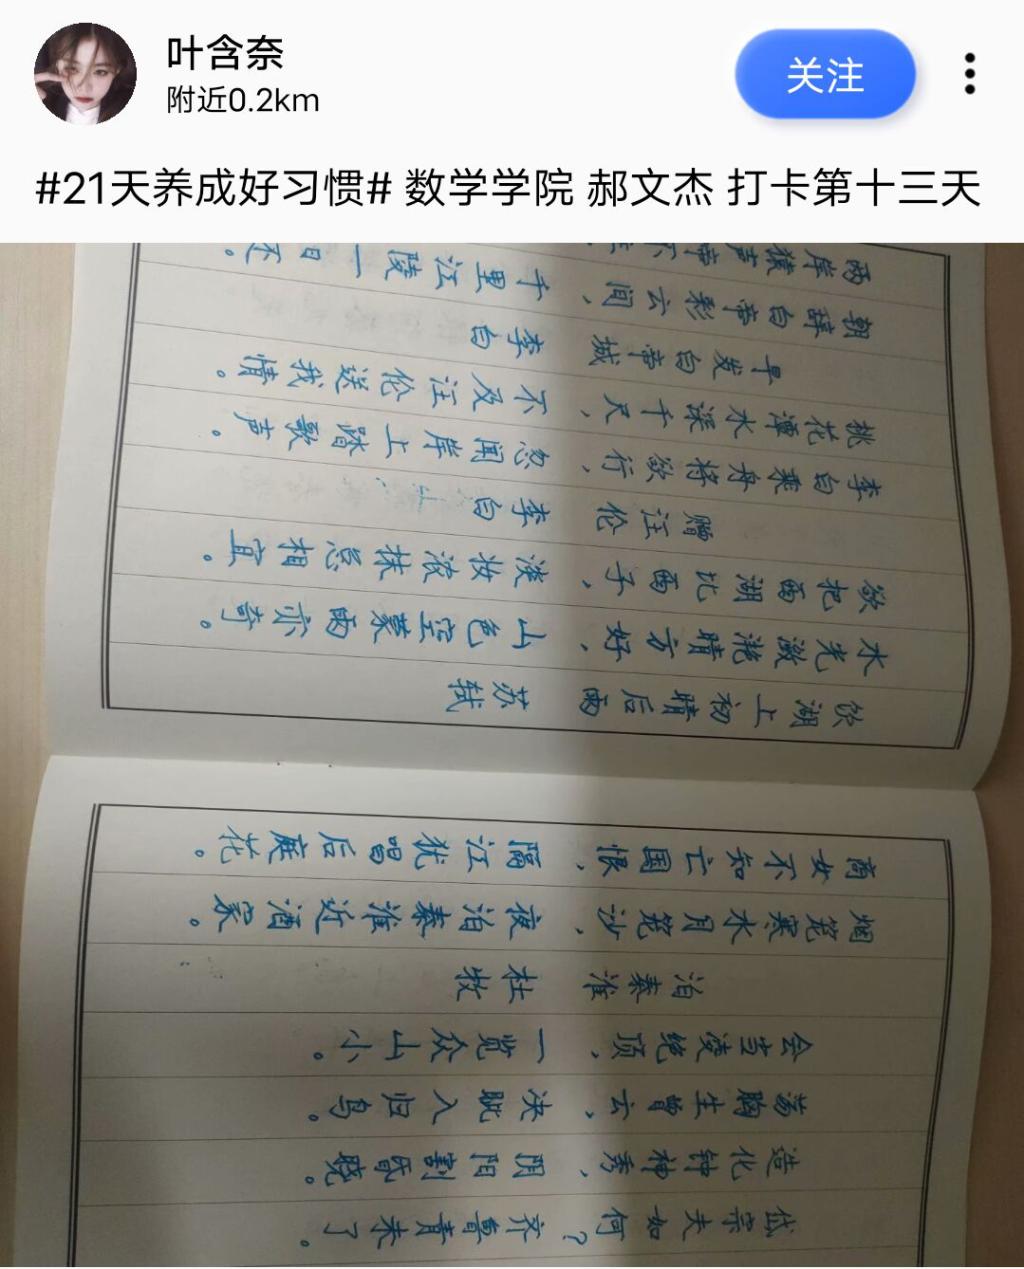 叶含奈
附近0.2km
关注
#21天养成好习惯# 数学学院 郝文杰 打卡第十三天
岱宗夫如何？齐鲁青未了。
造化钟神秀，阴阳割昏晓。
荡胸生曾云，决眦入归鸟。
会当凌绝顶，一览众山小。
泊秦淮 杜牧
烟笼寒水月笼沙，夜泊秦淮近酒家。
商女不知亡国恨，隔江犹唱后庭花。
饮湖上初晴后雨 苏轼
水光潋滟晴方好，山色空蒙雨亦奇。
欲把西湖比西子，淡妆浓抹总相宜。
赠汪伦 李白
李白乘舟将欲行，忽闻岸上踏歌声。
桃花潭水深千尺，不及汪伦送我情。
早发白帝城 李白
朝辞白帝彩云间，千里江陵一日还。
两岸猿声啼不